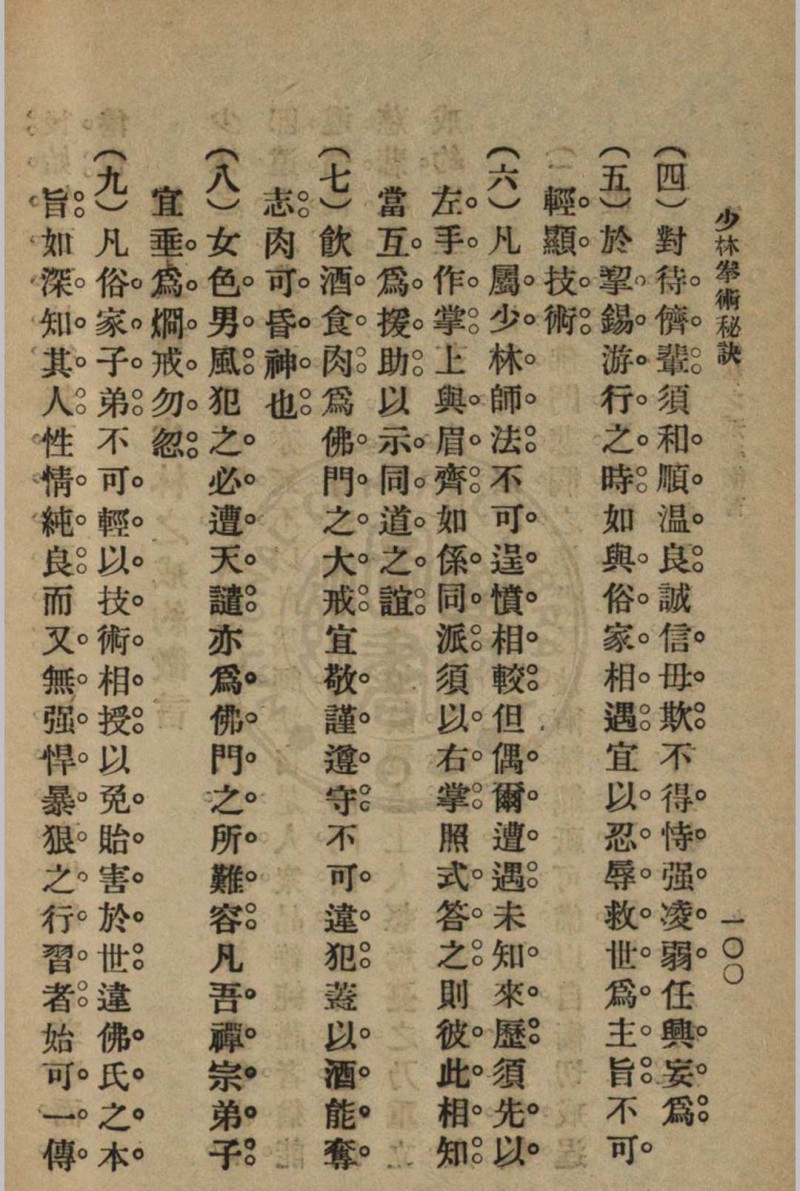 少林拳術秘訣
一〇〇
（四）對待儕輩須和順温良誠信毋欺不得恃强凌弱任興妄爲
（五）於挈錫游行之時如與俗家相遇宜以忍辱救世爲主旨不可
輕顯技術
（六）凡屬少林師法不可逞憤相較但偶爾遭遇未知來歷須先以
左手作掌上與眉齊如係同派須以右掌照式答之則彼此相知
當互爲援助以示同道之誼
（七）飲酒食肉爲佛門之大戒宜敬謹遵守不可違犯蓋以酒能奪
志肉可昏神也
（八）女色男風犯之必遭天譴亦爲佛門之所難容凡吾禪宗弟子
宜垂爲烱戒勿忽
（九）凡俗家子弟不可輕以技術相授以免貽害於世違佛氏之本
旨如深知其人性情純良而又無强悍暴狠之行習者始可一傳